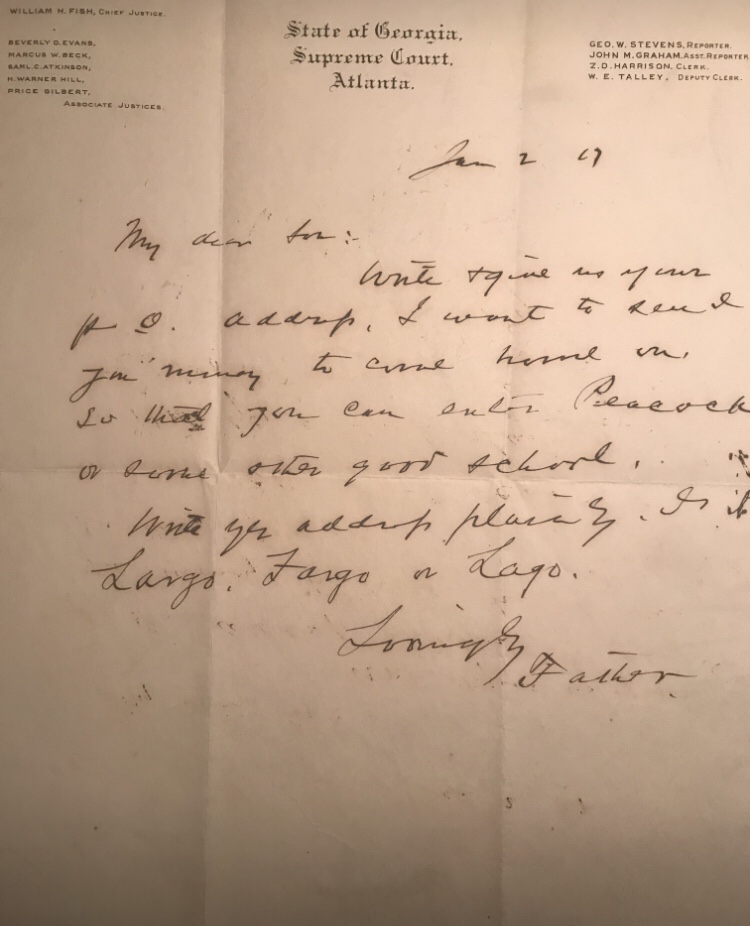 WILLIAM H. FISH, CHIEF JUSTICE.
BEVERLY D. EVANS,
MARCUS W. BECK,
SAML. C. ATKINSON,
H. WARNER HILL,
PRICE GILBERT,
ASSOCIATE JUSTICES.
State of Georgia,
Supreme Court,
Atlanta.
GEO. W. STEVENS, REPORTER.
JOHN M. GRAHAM, ASST. REPORTER
Z. D. HARRISON, CLERK.
W. E. TALLEY, DEPUTY CLERK.
Jan 2 17
My dear Son:-
Write & give us your
P. O. address, I want to send
you money to come home on,
so that you can enter Peacock
or some other good school.
Write yr address plainly. Is it
Largo, Fargo or Lago.
Lovingly
Father